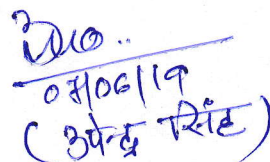 07/06/19
(उपेन्द्र सिंह)